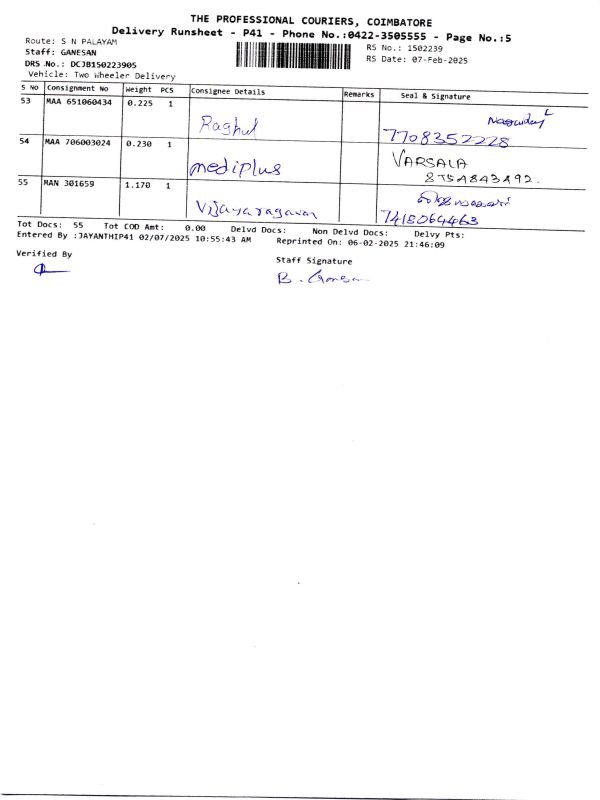 THE PROFESSIONAL COURIERS, COIMBATORE
Delivery Runsheet - P41 - Phone No.:0422-3505555 - Page No.:5
Route: S N PALAYAM
RS No.: 1502239
Staff: GANESAN
RS Date: 07-Feb-2025
DRS No.: DCJB150223905
Vehicle: Two Wheeler Delivery
S No Consignment No Weight PCS Consignee Details Remarks Seal & Signature
53 MAA 651060434 0.225 1
Raghul 7708352228
54 MAA 706003024 0.230 1 VARSALA
mediplus
55 MAN 301659 1.170 1
Vijayaragavan 7418064463
Tot Docs: 55 Tot COD Amt: 0.00 Delvd Docs: Non Delvd Docs: Delvy Pts:
Entered By :JAYANTHIP41 02/07/2025 10:55:43 AM Reprinted On: 06-02-2025 21:46:09
Verified By
Staff Signature
B. Ganesan